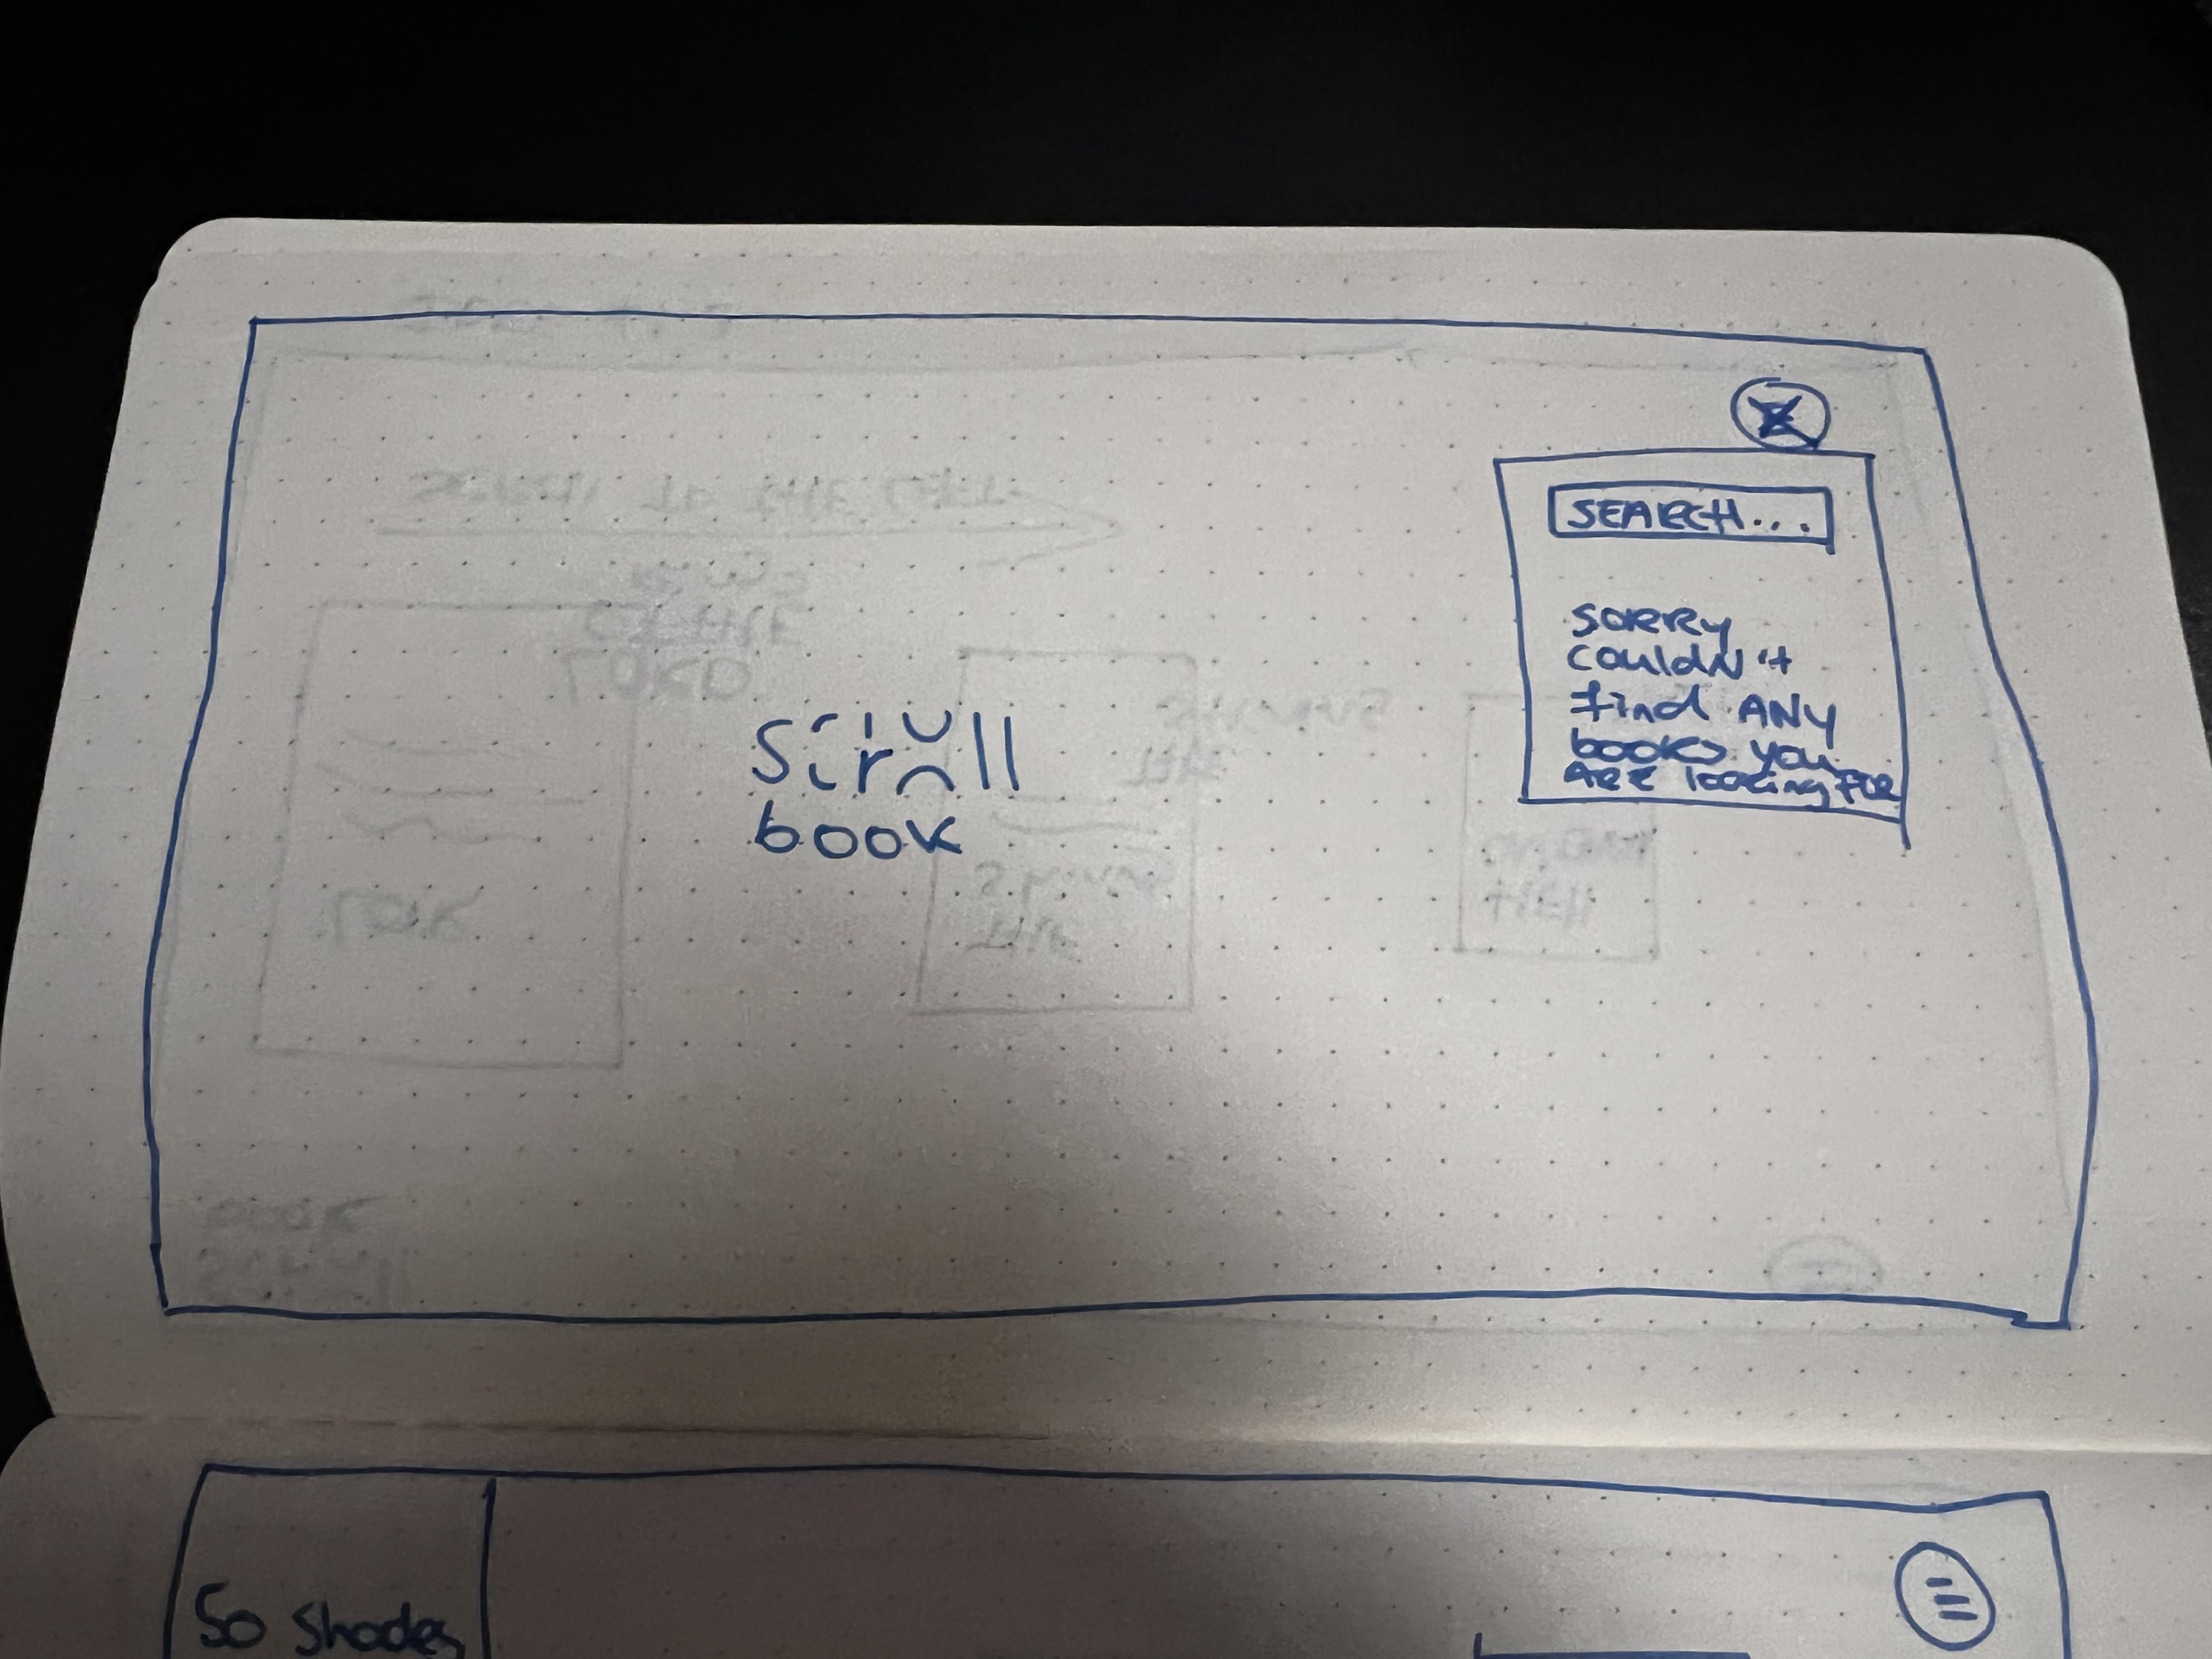 SEARCH...
SORRY
couldn't
find ANY
books you
ARE looking FOR
scroll
book
50 Shades